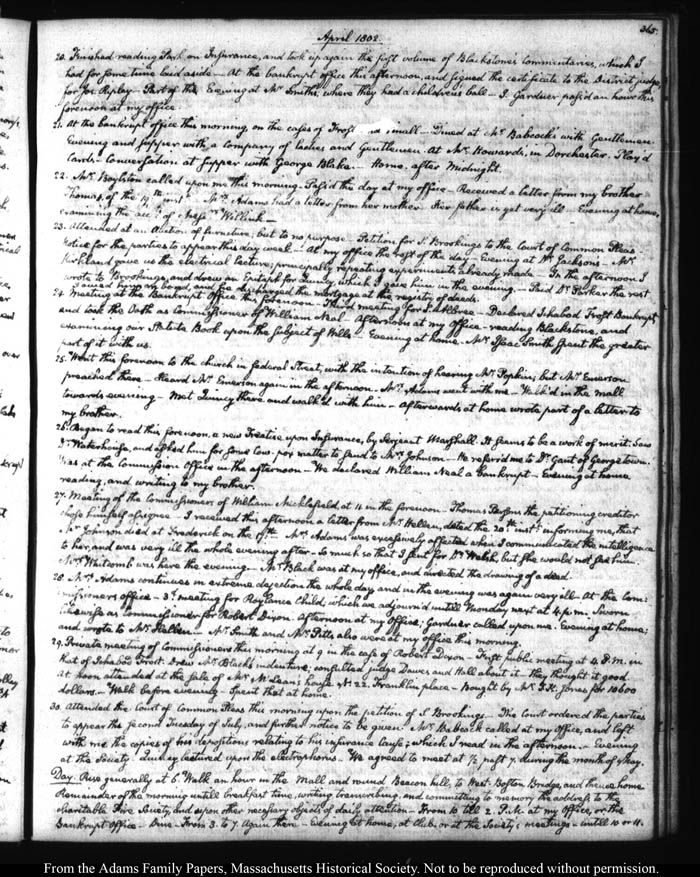 365.
April 1802.
20. Finished reading Park on Insurance, and took up again the first volume of Blackstone's Commentaries, which I
had for some time laid aside — At the bankrupt office this afternoon, and signed the certificate to the District judge,
for Jos: Ripley — Part of the Evening at Mr Smith's, where they had a children's ball — J. Gardner pass'd an hour this
forenoon at my office.
21. At the bankrupt office this morning, on the cases of Frost and Small — Dined at Mr Babcock's with Gentlemen.
Evening and supper with a company of Ladies and Gentlemen at Mr Howard's, in Dorchester. Play'd
Cards — Conversation at supper with George Blake — Home, after Midnight.
22. Mr Boylston called upon me this morning. Pass'd the day at my office — Received a letter from my brother
Thomas, of the inst — Mrs Adams had a letter from her mother — Her father is yet very ill — Evening at home,
examining the acct of Messrs Willink —
23. Attended at an Auction of furniture, but to no purpose — Petition for S. Brookings to the Court of Common Pleas —
Notice for the parties to appear this day week — At my office the rest of the day — Evening at Mr Jackson's — Mr
Kirkland gave us the electrical lecture; principally repeating experiments already made — In the afternoon I
wrote to Brookings, and drew an Epitaph for Quincy, which I gave him in the evening. — Paid Dr Parker the rest
I owed him on bond, and he discharged the mortgage at the registry of deeds.
24. Meeting at the Bankrupt Office this forenoon — Third meeting for S. Allbree — Declared Ichabod Frost Bankrupt,
and took the Oath as Commissioner of William Neal — Afternoon at my Office — reading Blackstone, and
examining our Statute Book upon the subject of Wills — Evening at home. Mr Isaac Smith spent the greater
part of it with us.
25. Went this forenoon to the church in federal Street, with the intention of hearing Mr Popkin; but Mr Emerson
preached there — Heard Mr Emerson again in the afternoon. Mrs Adams went with me — Walk'd in the mall
towards evening — Met Quincy there and walk'd with him — Afterwards at home wrote part of a letter to
my brother.
26. Began to read this forenoon, a new Treatise upon Insurance, by Serjeant Marshall. It seems to be a work of merit. Saw
Dr Waterhouse, and asked him for some Cow-pox matter to send to Mrs Johnson — He referr'd me to Dr Gant of Georgetown.
Was at the Commission Office in the afternoon — We declared William Neal a Bankrupt — Evening at home
reading, and writing to my brother.
27. Meeting of the Commissioners of William Micklefield, at 11 in the forenoon — Thomas Parsons the petitioning creditor
chose himself assignee — I received this afternoon a letter from Mr Hellen, dated the 20th inst: informing me, that
Mr Johnson died at Frederick on the 17th. Mrs Adams was excessively affected when I communicated the intelligence
to her, and was very ill the whole evening after — So much so that I sent for Dr Welsh, but she would not see him.
Mrs Whitcomb was here the evening — Mr Black was at my office, and directed the drawing of a deed.
28. Mrs Adams continues in extreme dejection the whole day and in the evening was again very ill — At the Com-
missioners office — 3d meeting for Royland Child, which we adjourn'd untill Monday next at 4 p.m. Sworn
likewise as Commissioner for Robert Dixon. Afternoon at my Office; Gardner called upon me. Evening at home;
and wrote to Mr Hellen — Mr Smith and Mr Pitts also were at my office this morning.
29. Private meeting of Commissioners this morning at 9 in the case of Robert Dixon — First public meeting at 4. P.M. in
that of Ichabod Frost. Drew Mr Black's indenture; consulted judge Dawes and Hall about it — they thought it good.
At noon attended at the sale of Mr McLean's house No 22. Franklin place — bought by Mr J. K. Jones for 10600
dollars. — Walk before evening — Spent that at home.
30. Attended the Court of Common Pleas this morning upon the petition of S. Brookings — The Court ordered the parties
to appear the second Tuesday of July, and further notice to be given. Mr Babcock called at my office, and left
with me the copies of depositions relating to his insurance cause; which I read in the afternoon — Evening
at the Society. Quincy lectured upon the electrophorus. We agreed to meet at ½ past 7. during the month of May.
Day. Rise generally at 6. Walk an hour in the Mall and round Beacon hill, to West-Boston Bridge, and thence home
Remainder of the morning untill breakfast time, writing, transcribing, and committing to memory the address to the
Charitable Fire Society, and upon other necessary objects of daily attention — From 10 till 2. P.M. at my office, or the
Bankrupt Office — Dine — From 3. to 7. Again there — Evening at home, at Club, or at the Society's meetings — untill 10 or 11.
From the Adams Family Papers, Massachusetts Historical Society. Not to be reproduced without permission.